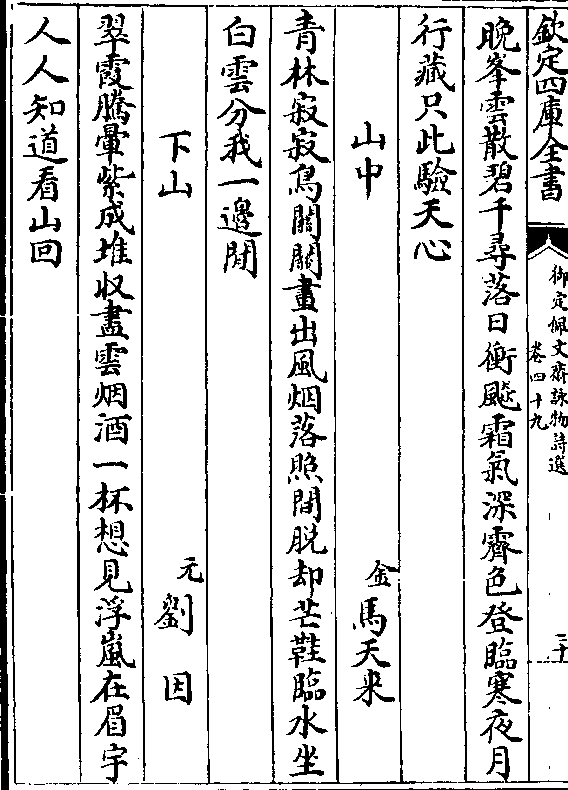 欽定四庫全書
御定佩文齋詠物詩選
卷四十九
三十
晚峯雲散碧千尋落日衝飈霜氣深霽色登臨寒夜月
行藏只此驗天心
山中
金馬天來
青林寂寂鳥關關畫出風烟落照間脱却芒鞋臨水坐
白雲分我一邊閒
下山
元劉因
翠霞騰暈紫成堆収盡雲烟酒一杯想見浮嵐在眉宇
人人知道看山回